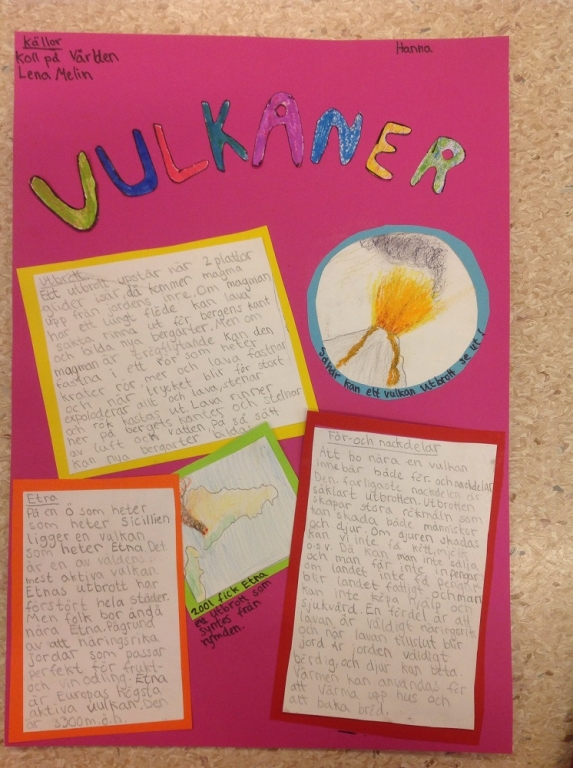 Källor
Koll på Världen
Lena Melin
Hanna
VULKANER
Utbrott
Ett utbrott uppstår när 2 plattor
glider isär, då kommer magma
upp från jordens inre. Om magman
har ett lugnt flöde kan lava
sakta rinna ut för bergens kant
och bilda nya bergarter. Men om
magman är trögflytande kan den
fastna i ett rör som heter
krater rör mer och lava fastnar
och när trycket blir för stort
exploderar allt och lava, stenar
och rök kastas ut. Lava rinner
ner på bergets kanter och stelnar
av luft och vatten på så sätt
kan nya bergarter bildas
Såhär kan ett vulkan utbrott se ut!
Etna
På en Ö som heter
som heter Sicillien
ligger en vulkan
som heter Etna. Det
är en av väldens
mest aktiva vulkan.
Etnas utbrott har
förstört hela städer.
Men folk bor ändå
nära Etna. Pågrund
av att näringsrika
jordar som passar
perfekt för frukt-
och vinodling. Etna
är Europas högsta
aktiva vulkan. Den
är 3300 m.ö.h.
2001 fick Etna
ett utbrott som
syntes från
rymden.
För-och nackdelar
Att bo nära en vulkan
innebär både för och nackdelar
Den farligaste nackdelen är
såklart utbrotten. Utbrotten
skapar stora rökmoln som
kan skada både människor
och djur. Om djuren skadas
kan vi inte få kött, mjölk
o.s.v. Då kan man inte sälja
och man får inte in pengar
om landet inte få pengar
blir landet fattigt och man
kan inte köpa hjälp och
sjukvård. En fördel är att
lavan är väldigt näringsrik
och när lavan tillslut blir
jord är jorden väldigt
bördig och djur kan beta.
Värmen kan användas för
att värma upp hus och
att baka bröd.